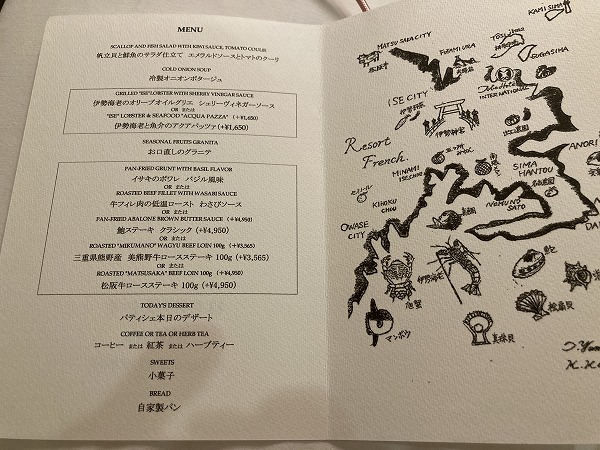 MENU
SCALLOP AND FISH SALAD WITH KIWI SAUCE, TOMATO COULIS
帆立貝と鮮魚のサラダ仕立て エメラルドソースとトマトのクーリ
COLD ONION SOUP
冷製オニオンポタージュ
GRILLED "ISE" LOBSTER WITH SHERRY VINEGAR SAUCE
伊勢海老のオリーブオイルグリエ シェリーヴィネガーソース
OR または
"ISE" LOBSTER & SEAFOOD "ACQUA PAZZA" (+¥1,650)
伊勢海老と魚介のアクアパッツァ (+¥1,650)
SEASONAL FRUITS GRANITA
お口直しのグラニテ
PAN-FRIED GRUNT WITH BASIL FLAVOR
イサキのポワレ バジル風味
OR または
ROASTED BEEF FILLET WITH WASABI SAUCE
牛フィレ肉の低温ロースト わさびソース
OR または
PAN-FRIED ABALONE BROWN BUTTER SAUCE (+¥4,950)
鮑ステーキ クラシック (+¥4,950)
OR または
ROASTED "MIKUMANO" WAGYU BEEF LOIN 100g (+¥3,565)
三重県熊野産 美熊野牛ロースステーキ 100g (+¥3,565)
OR または
ROASTED "MATSUSAKA" BEEF LOIN 100g (+¥4,950)
松阪牛ロースステーキ 100g (+¥4,950)
TODAY'S DESSERT
パティシエ本日のデザート
COFFEE OR TEA OR HERB TEA
コーヒー または 紅茶 または ハーブティー
SWEETS
小菓子
BREAD
自家製パン
KAMI SIMA
MATSUSAKA CITY
FUTAMI URA
SUGASIMA
ISE CITY
INTERNATIONAL
伊勢神宮
Resort
French
MINAMI
ISE CHO
SIMA
HANTOU
ANORI
KIHOKU
CHOU
NOMUNO
SATO
OWASE
CITY
伊勢海老
マンボウ
真珠貝
桧扇貝